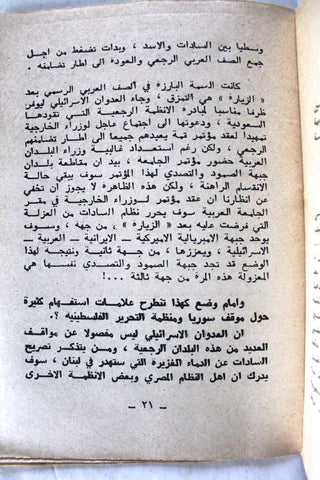 وسطيا بين السادات والاسد ، وبدات تضغط من اجل
جمع الصف العربي الرجعي والعودة الى اطار تضامنه .
كانت السمة البارزة في الصف العربي الرسمي بعد
« الزيارة » هي التمزق ، وجاء العدوان الاسرائيلي ليوفر
ظرفا مناسبا لمبادرة الانظمة الرجعية التي تقودها
السعودية ، ودعوتها الى اجتماع عاجل لوزراء الخارجية
العرب ، لعقد مؤتمر قمة يعيدهم جميعا الى اطار تضامنهم
الرجعي ، ولكن رغم استعداد غالبية وزراء البلدان
العربية حضور مؤتمر الجامعة ، بيد ان مقاطعة بلدان
جبهة الصمود والتصدي للمؤتمر سوف يبقي حالة
الانقسام الراهنة ، ولكن هذه الظاهرة لا يجوز أن تخفي
عن انظارنا ان عقد مؤتمر لوزراء الخارجية في مقر
الجامعة العربية سوف يحرر نظام السادات من العزلة
التي فرضت عليه بعد « الزيارة » ، من جهة ، وسوف
يوحد جبهة الامبريالية الاميركية ــ الايرانية ــ العربية ــ
الاسرائيلية ، ويعززها ، من جهة ثانية ونتيجة لهذا
الوضع قد تجد جبهة الصمود والتصدي نفسها هي
المعزولة هذه المرة من جهة ثالثة ...!
وامام وضع كهذا تنطرح علامات استفهام كثيرة
حول موقف سوريا ومنظمة التحرير الفلسطينية ؟.
ان العدوان الاسرائيلي ليس مفصولا عن مواقف
العديد من هذه البلدان الرجعية ، ومن يتذكر تصريح
السادات عن الدماء الغزيرة التي ستهدر في لبنان ، سوف
يدرك ان اهل النظام المصري وبعض الانظمة الاخرى
ــ ٢١ ــ